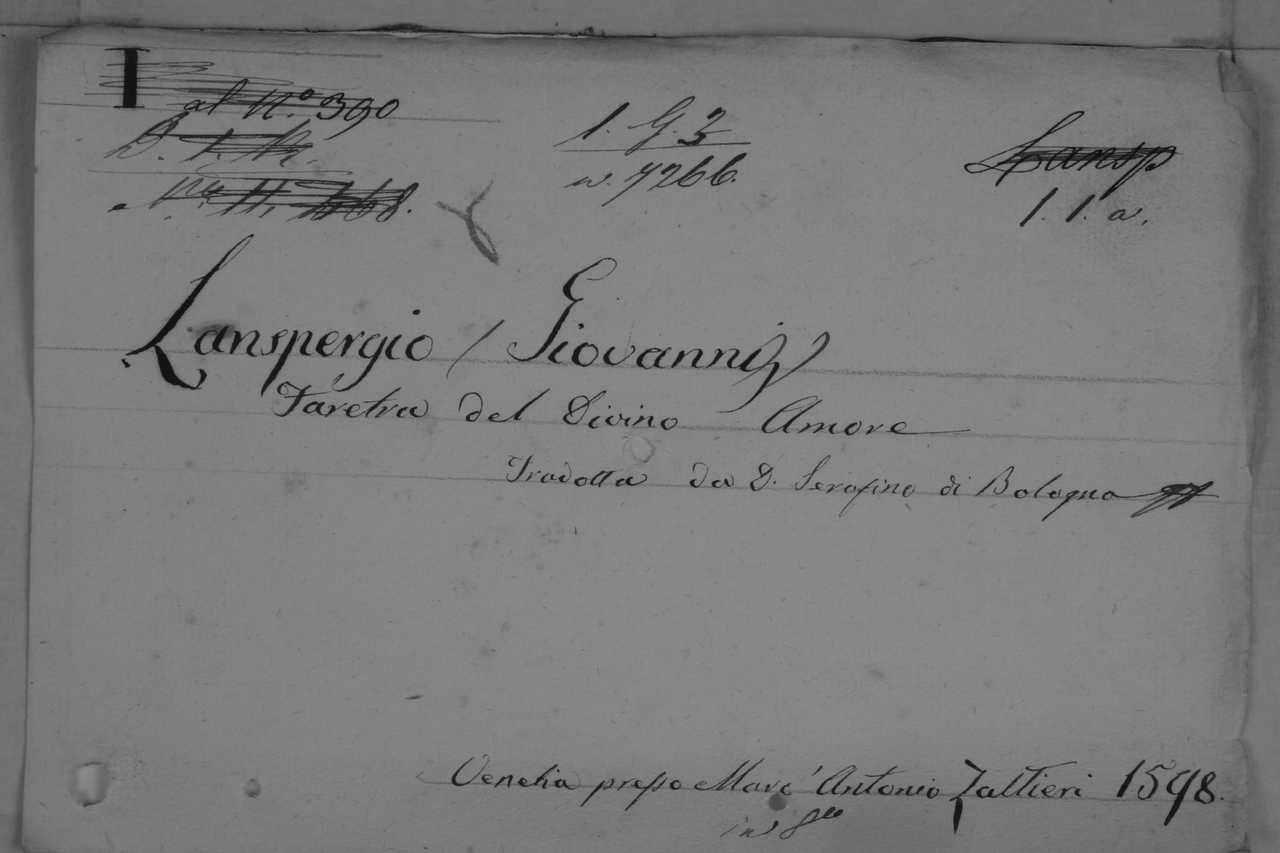 al N.º 390
1. G. 3
n. 7266.
Lansp
1. 1. a.
Lanspergio (Giovanni)
Faretra del Divino Amore
Tradotta da D. Serafino di Bologna
Venetia presso Marc' Antonio Zaltieri 1598.
in 8vo